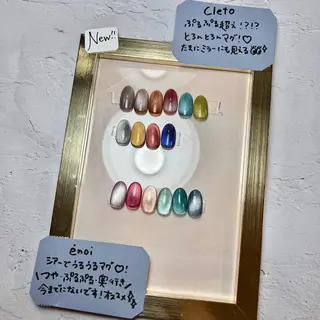 New!!
Cleto
ぷるぷる超え!?!?
とろんとろんマグ!♡
たまにミラーにも見える
énoi
シアーでうるうるマグ♡!
\つや・ぷるぷる・奥行き/
今までにないです!オススメ